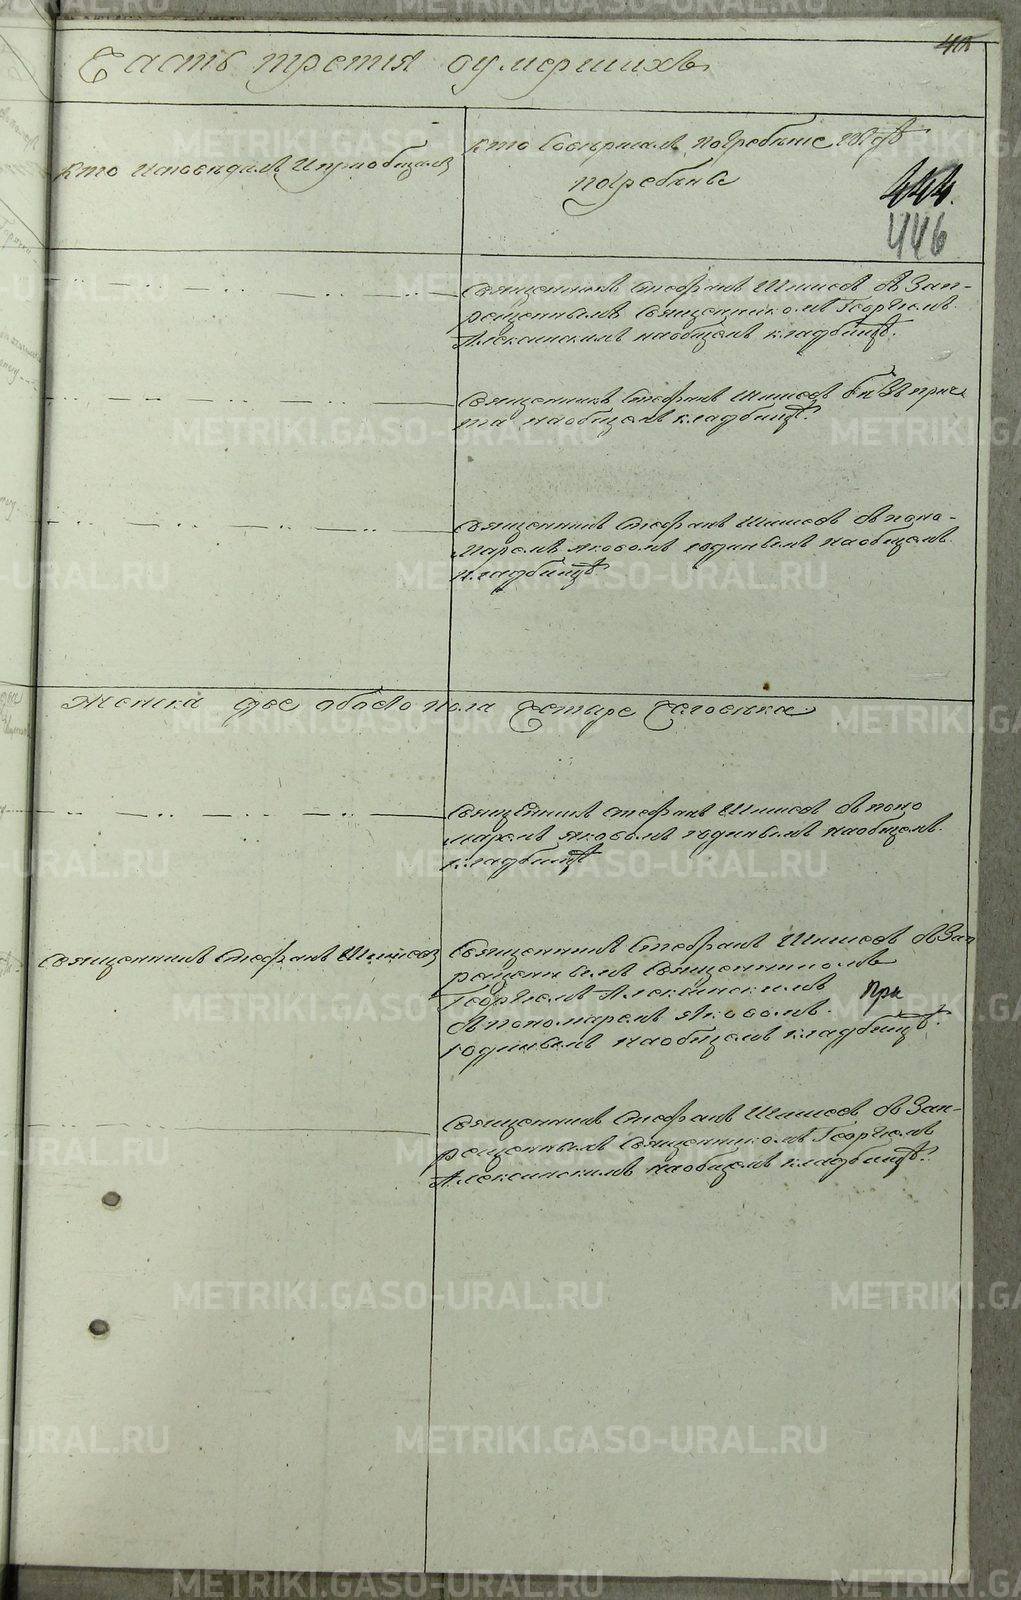 Часть третія оумершихъ
Кто исповѣдалъ и пріобщалъ
Кто совершалъ погребеніе и гдѣ
погребены
444.
446
Священникъ Стефанъ Шишевъ съ зап-
рещеннымъ священникомъ Георгіемъ
Алексинскимъ наобщемъ кладбищѣ.
Священникъ Стефанъ Шишевъ
та наобщемъ кладбищѣ.
Священникъ Стефанъ Шишевъ съ поно-
маремъ Яковомъ наобщемъ
кладбищѣ
Женска две обоего пола Четыре Человека
Священникъ Стефанъ Шишевъ съ поно
маремъ Яковомъ наобщемъ
кладбищѣ
Священникъ Стефанъ Шишевъ
Священникъ Стефанъ Шишевъ съ зап
рещеннымъ священникомъ
Георгіемъ Алексинскимъ при
съ пономаремъ Яковомъ
наобщемъ кладбищѣ.
Священникъ Стефанъ Шишевъ съ зап-
рещеннымъ священникомъ Георгіемъ
Алексинскимъ наобщемъ кладбищѣ.
METRIKI.GASO-URAL.RU